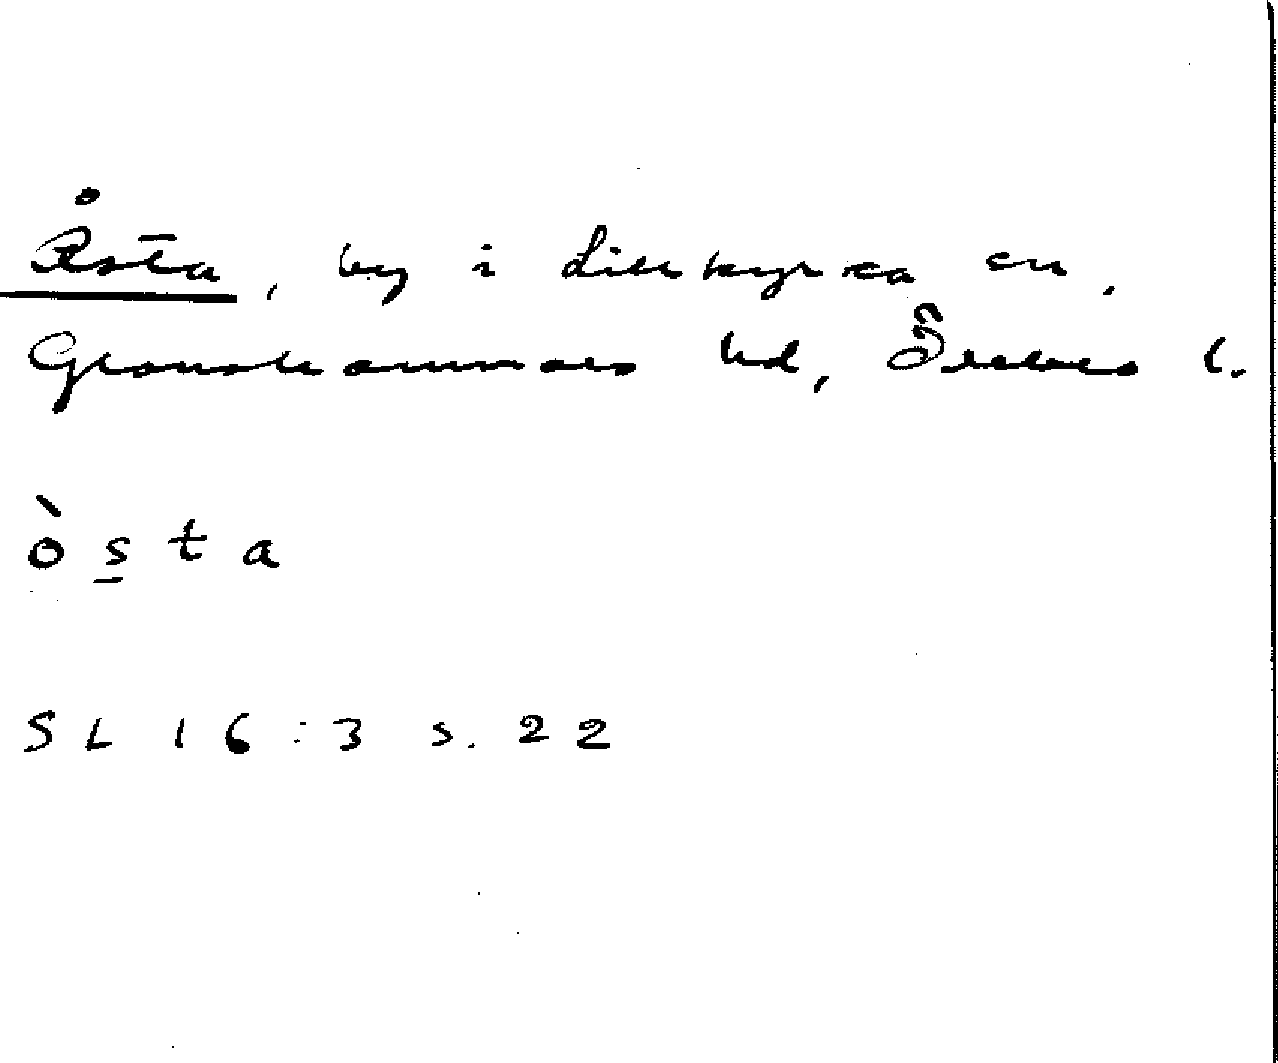 Åsta, by i Lillkyrka sn,
Glanshammars hd, Örebro l.
òs̲ta
SL 16:3 s. 22